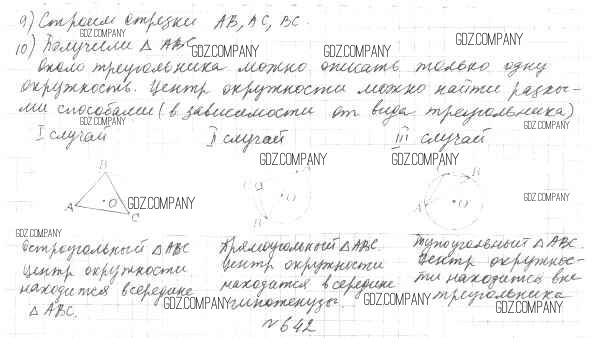 9) Строим отрезки АВ, АС, ВС.
GDZ.COMPANY
10) Получили △ АВС
GDZ.COMPANY GDZ.COMPANY GDZ.COMPANY
Около треугольника можно описать только одну
окружность. Центр окружности можно найти разны-
ми способами (в зависимости от вида треугольника)
GDZ.COMPANY GDZ.COMPANY
I случай II случай III случай
GDZ.COMPANY GDZ.COMPANY
B
A O C GDZ.COMPANY
C O
B
A O
GDZ.COMPANY
GDZ.COMPANY
Остроугольный △ АВС
Центр окружности
находится в середине
△ АВС.
Прямоугольный △ АВС.
Центр окружности
находится в середине
гипотенузы.
Тупоугольный △ АВС.
Центр окружнос-
ти находится вне
треугольника
GDZ.COMPANY GDZ.COMPANY GDZ.COMPANY
№ 642